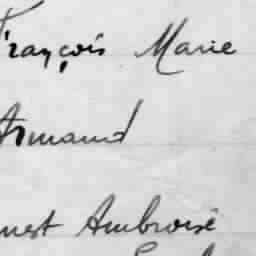 François Marie
Armand
nest Ambroise